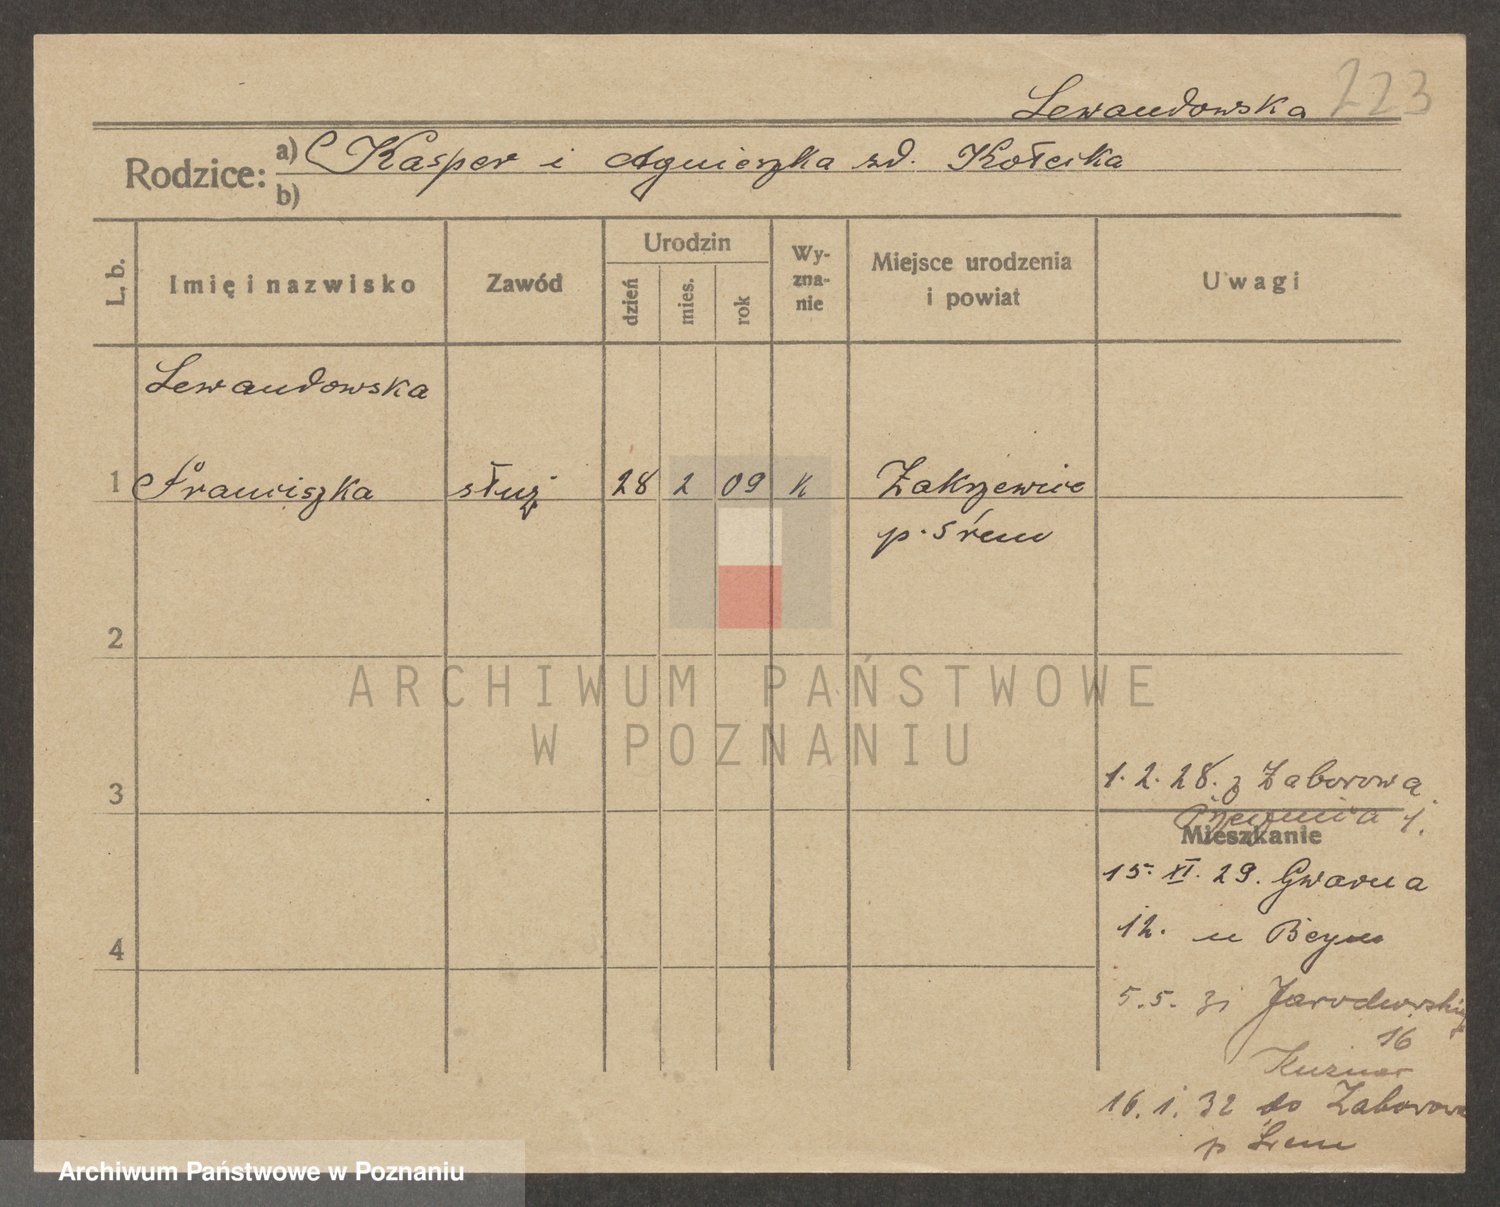 Lewandowska 223
Rodzice: a) Kasper i Agnieszka zd. Kołecka
b)
L. b.
Imię i nazwisko
Zawód
Urodzin
dzień
mies.
rok
Wy-
zna-
nie
Miejsce urodzenia
i powiat
Uwagi
Lewandowska
1 Franciszka służ 28 2 09 k Zakrzewice
p. Śrem
2
ARCHIWUM PAŃSTWOWE
W POZNANIU
3
1. 2. 28. z Zaborowa
Mieszkanie
15. XI. 29. Gwarna
12. u Beym
4
5. 5. 31 Jarochowskiego
16
16. 1. 32 do Zaborowa
p Śrem
Archiwum Państwowe w Poznaniu